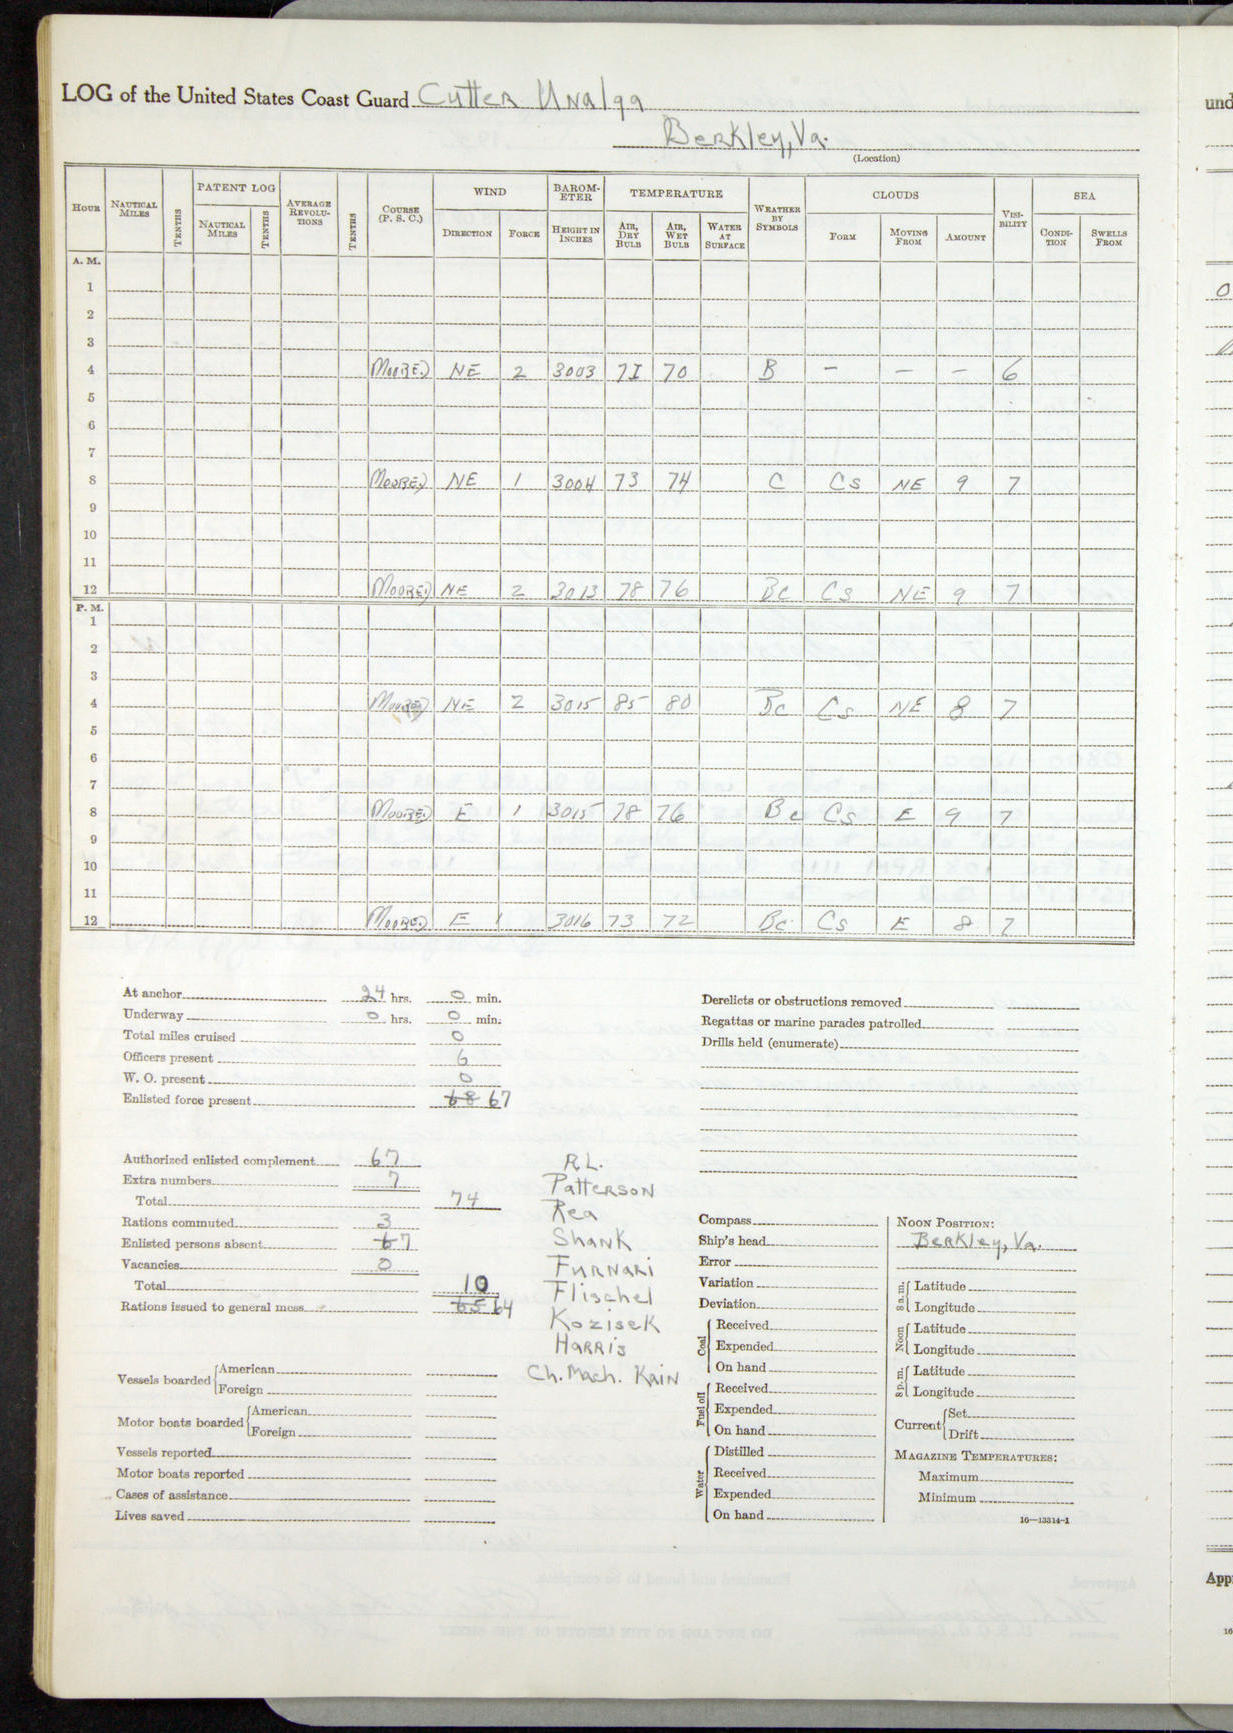 LOG of the United States Coast Guard Cutter Unalga
Berkley, Va.
(Location)
HOUR NAUTICAL MILES TENTHS PATENT LOG NAUTICAL MILES TENTHS AVERAGE REVOLUTIONS TENTHS COURSE (P. S. C.) WIND DIRECTION FORCE BAROMETER HEIGHT IN INCHES TEMPERATURE AIR, DRY BULB AIR, WET BULB WATER AT SURFACE WEATHER BY SYMBOLS CLOUDS FORM MOVING FROM AMOUNT VISIBILITY SEA CONDITION SWELLS FROM
A. M.
1
2
3
4 MOORED NE 2 3003 71 70 B – – – 6
5
6
7
8 MOORED NE 1 3004 73 74 C Cs NE 9 7
9
10
11
12 MOORED NE 2 3013 78 76 Bc Cs NE 9 7
P. M.
1
2
3
4 MOORED NE 2 3015 85 80 Bc Cs NE 8 7
5
6
7
8 MOORED E 1 3015 78 76 Bc Cs E 9 7
9
10
11
12 MOORED E 1 3016 73 72 Bc Cs E 8 7
At anchor 24 hrs. 0 min.
Underway 0 hrs. 0 min.
Total miles cruised 0
Officers present 6
W. O. present 0
Enlisted force present 68 67
Derelicts or obstructions removed
Regattas or marine parades patrolled
Drills held (enumerate)
Authorized enlisted complement 67
Extra numbers 7
Total 74
Rations commuted 3
Enlisted persons absent 6 7
Vacancies 0
Total 10
Rations issued to general mess 65 64
R.L.
Patterson
Rea
Shank
Furnari
Flischel
Kozisek
Harris
Ch. Mach. Kain
Vessels boarded American
Foreign
Motor boats boarded American
Foreign
Vessels reported
Motor boats reported
Cases of assistance
Lives saved
Compass
Ship's head
Error
Variation
Deviation
Coal Received
Expended
On hand
Fuel oil Received
Expended
On hand
Water Distilled
Received
Expended
On hand
NOON POSITION:
Berkley, Va.
8 a. m. Latitude
Longitude
Noon Latitude
Longitude
8 p. m. Latitude
Longitude
Current Set
Drift
MAGAZINE TEMPERATURES:
Maximum
Minimum
16—13314-1
und
App
16